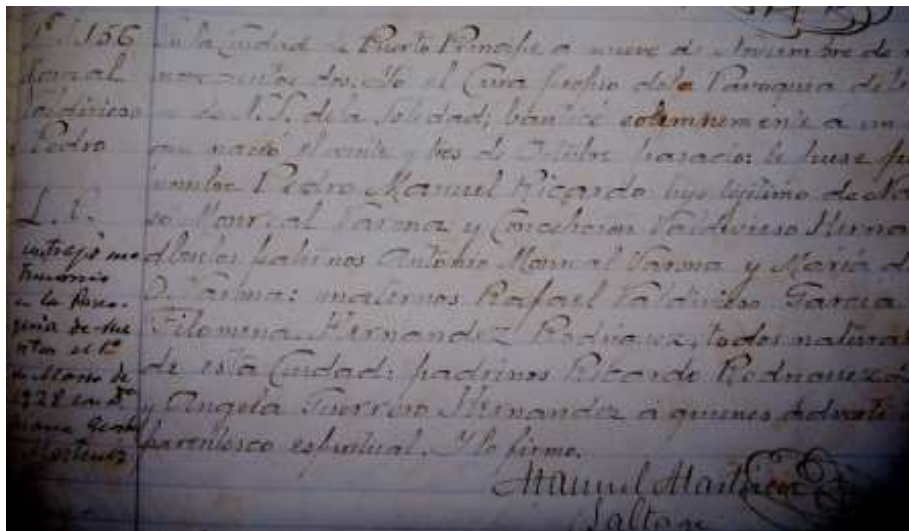 Nº 156
Monreal
Valdivieso
Pedro
L. C.
contrajo ma
trimonio
en la Parro-
quia de
el 1º
de Marzo de
1928 con Dª
Martinez
En la Ciudad de Puerto Principe a nueve de Noviembre de
novecientos dos. Yo el Cura propio de la Parroquia de
de N. S. de la Soledad; bauticé solemnemente a un
que nació el veinte y tres de Octubre pasado: le puse por
nombre Pedro Manuel Ricardo hijo legitimo de
Monreal Varona y Concepción Valdivieso Herna
abuelos paternos Antonio Monreal Varona y Maria
Varona: maternos Rafael Valdivieso Garcia
Filomena Hernandez Rodriguez, todos natural
de esta Ciudad: padrinos Ricardo Rodriguez
y Angela Guerrero Hernandez á quienes advertí
parentesco espiritual. Y lo firmo.
Manuel Martinez
Saltor